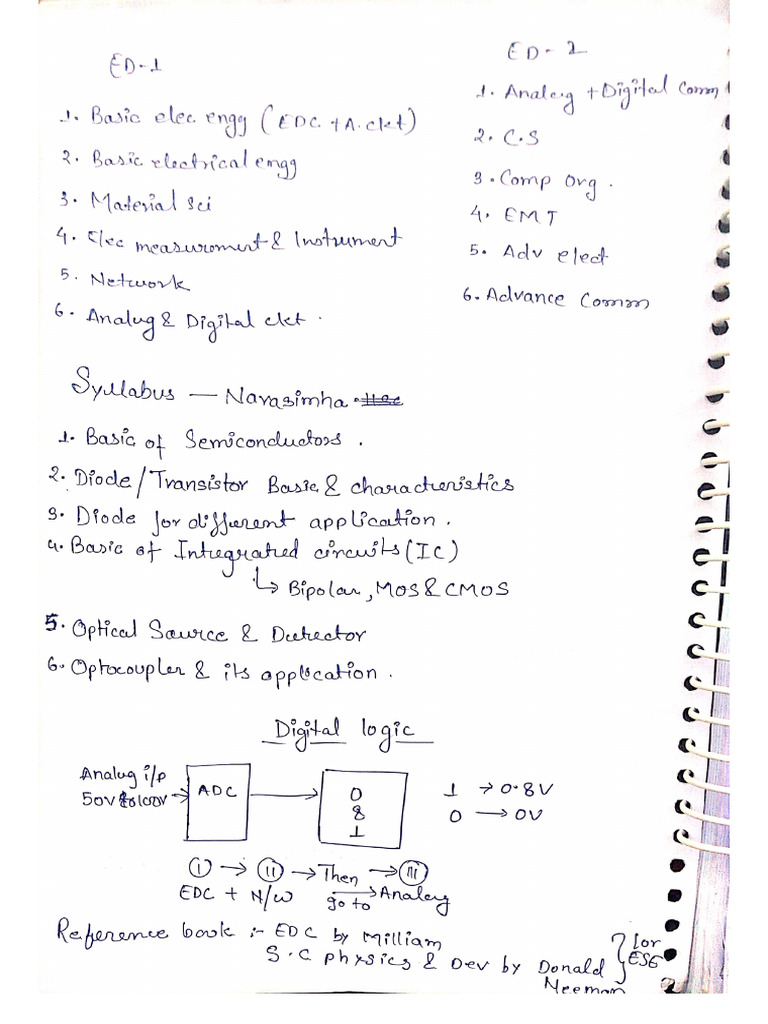 ED-1
1. Basic elec. engg (EDC + A.ckt)
2. Basic electrical engg
3. Material sci
4. Elec measurement & Instrument
5. Network
6. Analog & Digital ckt.
ED-2
1. Analog + Digital Comm
2. C.S
3. Comp Org.
4. EMT
5. Adv elect
6. Advance Comm
Syllabus — Narasimha.
1. Basic of Semiconductors.
2. Diode/Transistor Basic & characteristics
3. Diode for different application.
4. Basic of Integrated circuits (IC)
↳ Bipolar, MOS & CMOS
5. Optical Source & Detector
6. Optocoupler & its application.
Digital logic
Analog i/p
50V to 100V → ADC → 0 & 1
1 → 0.8V
0 → 0V
I → II → Then → III
EDC + N/W go to Analog
Reference book :- EDC by Milliam
S.C physics & Dev by Donald
Neeman
for
ESE